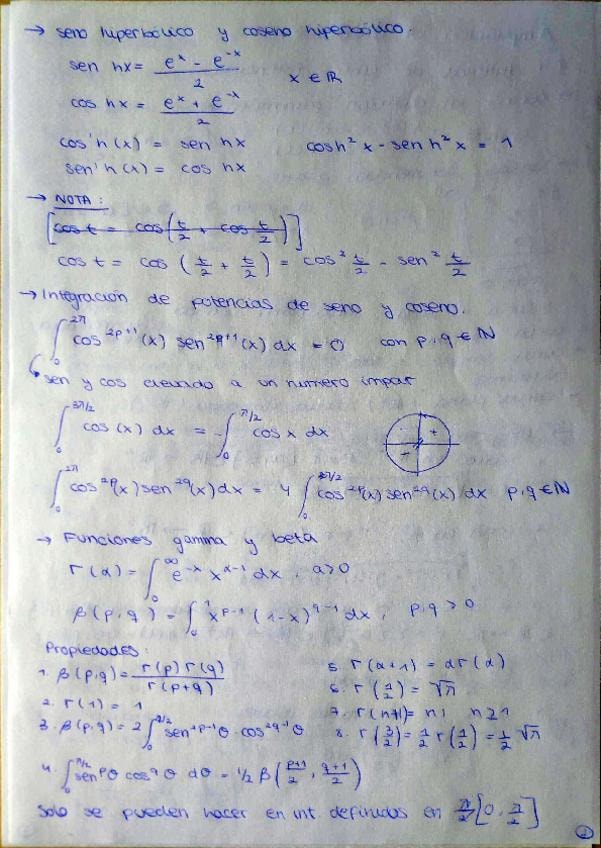 → seno hiperbólico y coseno hiperbólico.
sen hx = (e^x - e^-x)/2    x ∈ ℝ
cos hx = (e^x + e^-x)/2
cos'h(x) = sen hx    cosh² x - senh² x = 1
sen'h(x) = cos hx
→ NOTA:
[cos t = cos(t/2 + cos t/2)]
cos t = cos (t/2 + t/2) = cos² t/2 - sen² t/2
→ Integración de potencias de seno y coseno.
∫_0^2π cos^2p+1 (x) sen^2q+1 (x) dx = 0    con p,q ∈ ℕ
sen y cos elevado a un numero impar
∫_0^3π/2 cos (x) dx = -∫_0^π/2 cos x dx    + -
∫_0^2π cos^2p (x) sen^2q (x) dx = 4 ∫_0^π/2 cos^2p (x) sen^2q (x) dx    p,q ∈ ℕ
→ Funciones gamma y beta
Γ(α) = ∫_0^∞ e^-x x^α-1 dx, a>0
β(p,q) = ∫_0^1 x^p-1 (1-x)^q-1 dx, p,q > 0
Propiedades:
1. β(p,q) = Γ(p)Γ(q)/Γ(p+q)
2. Γ(1) = 1
3. β(p,q) = 2∫_0^π/2 sen^2p-1 θ · cos^2q-1 θ
4. ∫_0^π/2 sen^p θ cos^q θ dθ = 1/2 β((p+1)/2, (q+1)/2)
5. Γ(α+1) = αΓ(α)
6. Γ(1/2) = √π
7. Γ(n+1) = n!    n≥1
8. Γ(3/2) = 1/2 Γ(1/2) = 1/2 √π
Solo se pueden hacer en int. definidas en π/2 [0, π/2]
2